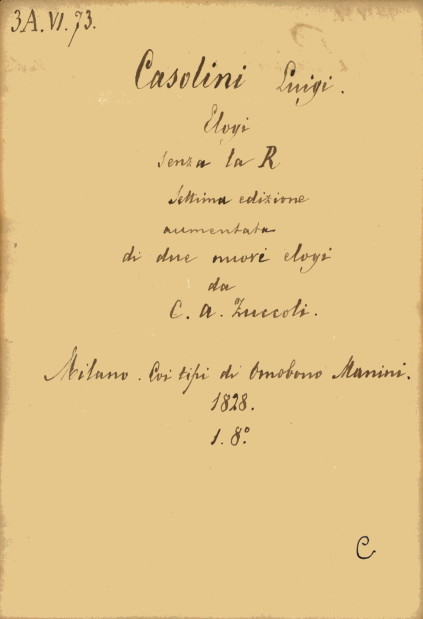 3A.VI.73.
Casolini Luigi.
Elogi
senza la R
Settima edizione
aumentata
di due nuovi elogi
da
C. A. Zuccoli.
Milano. Coi tipi di Omobono Manini.
1828.
1. 8º
C